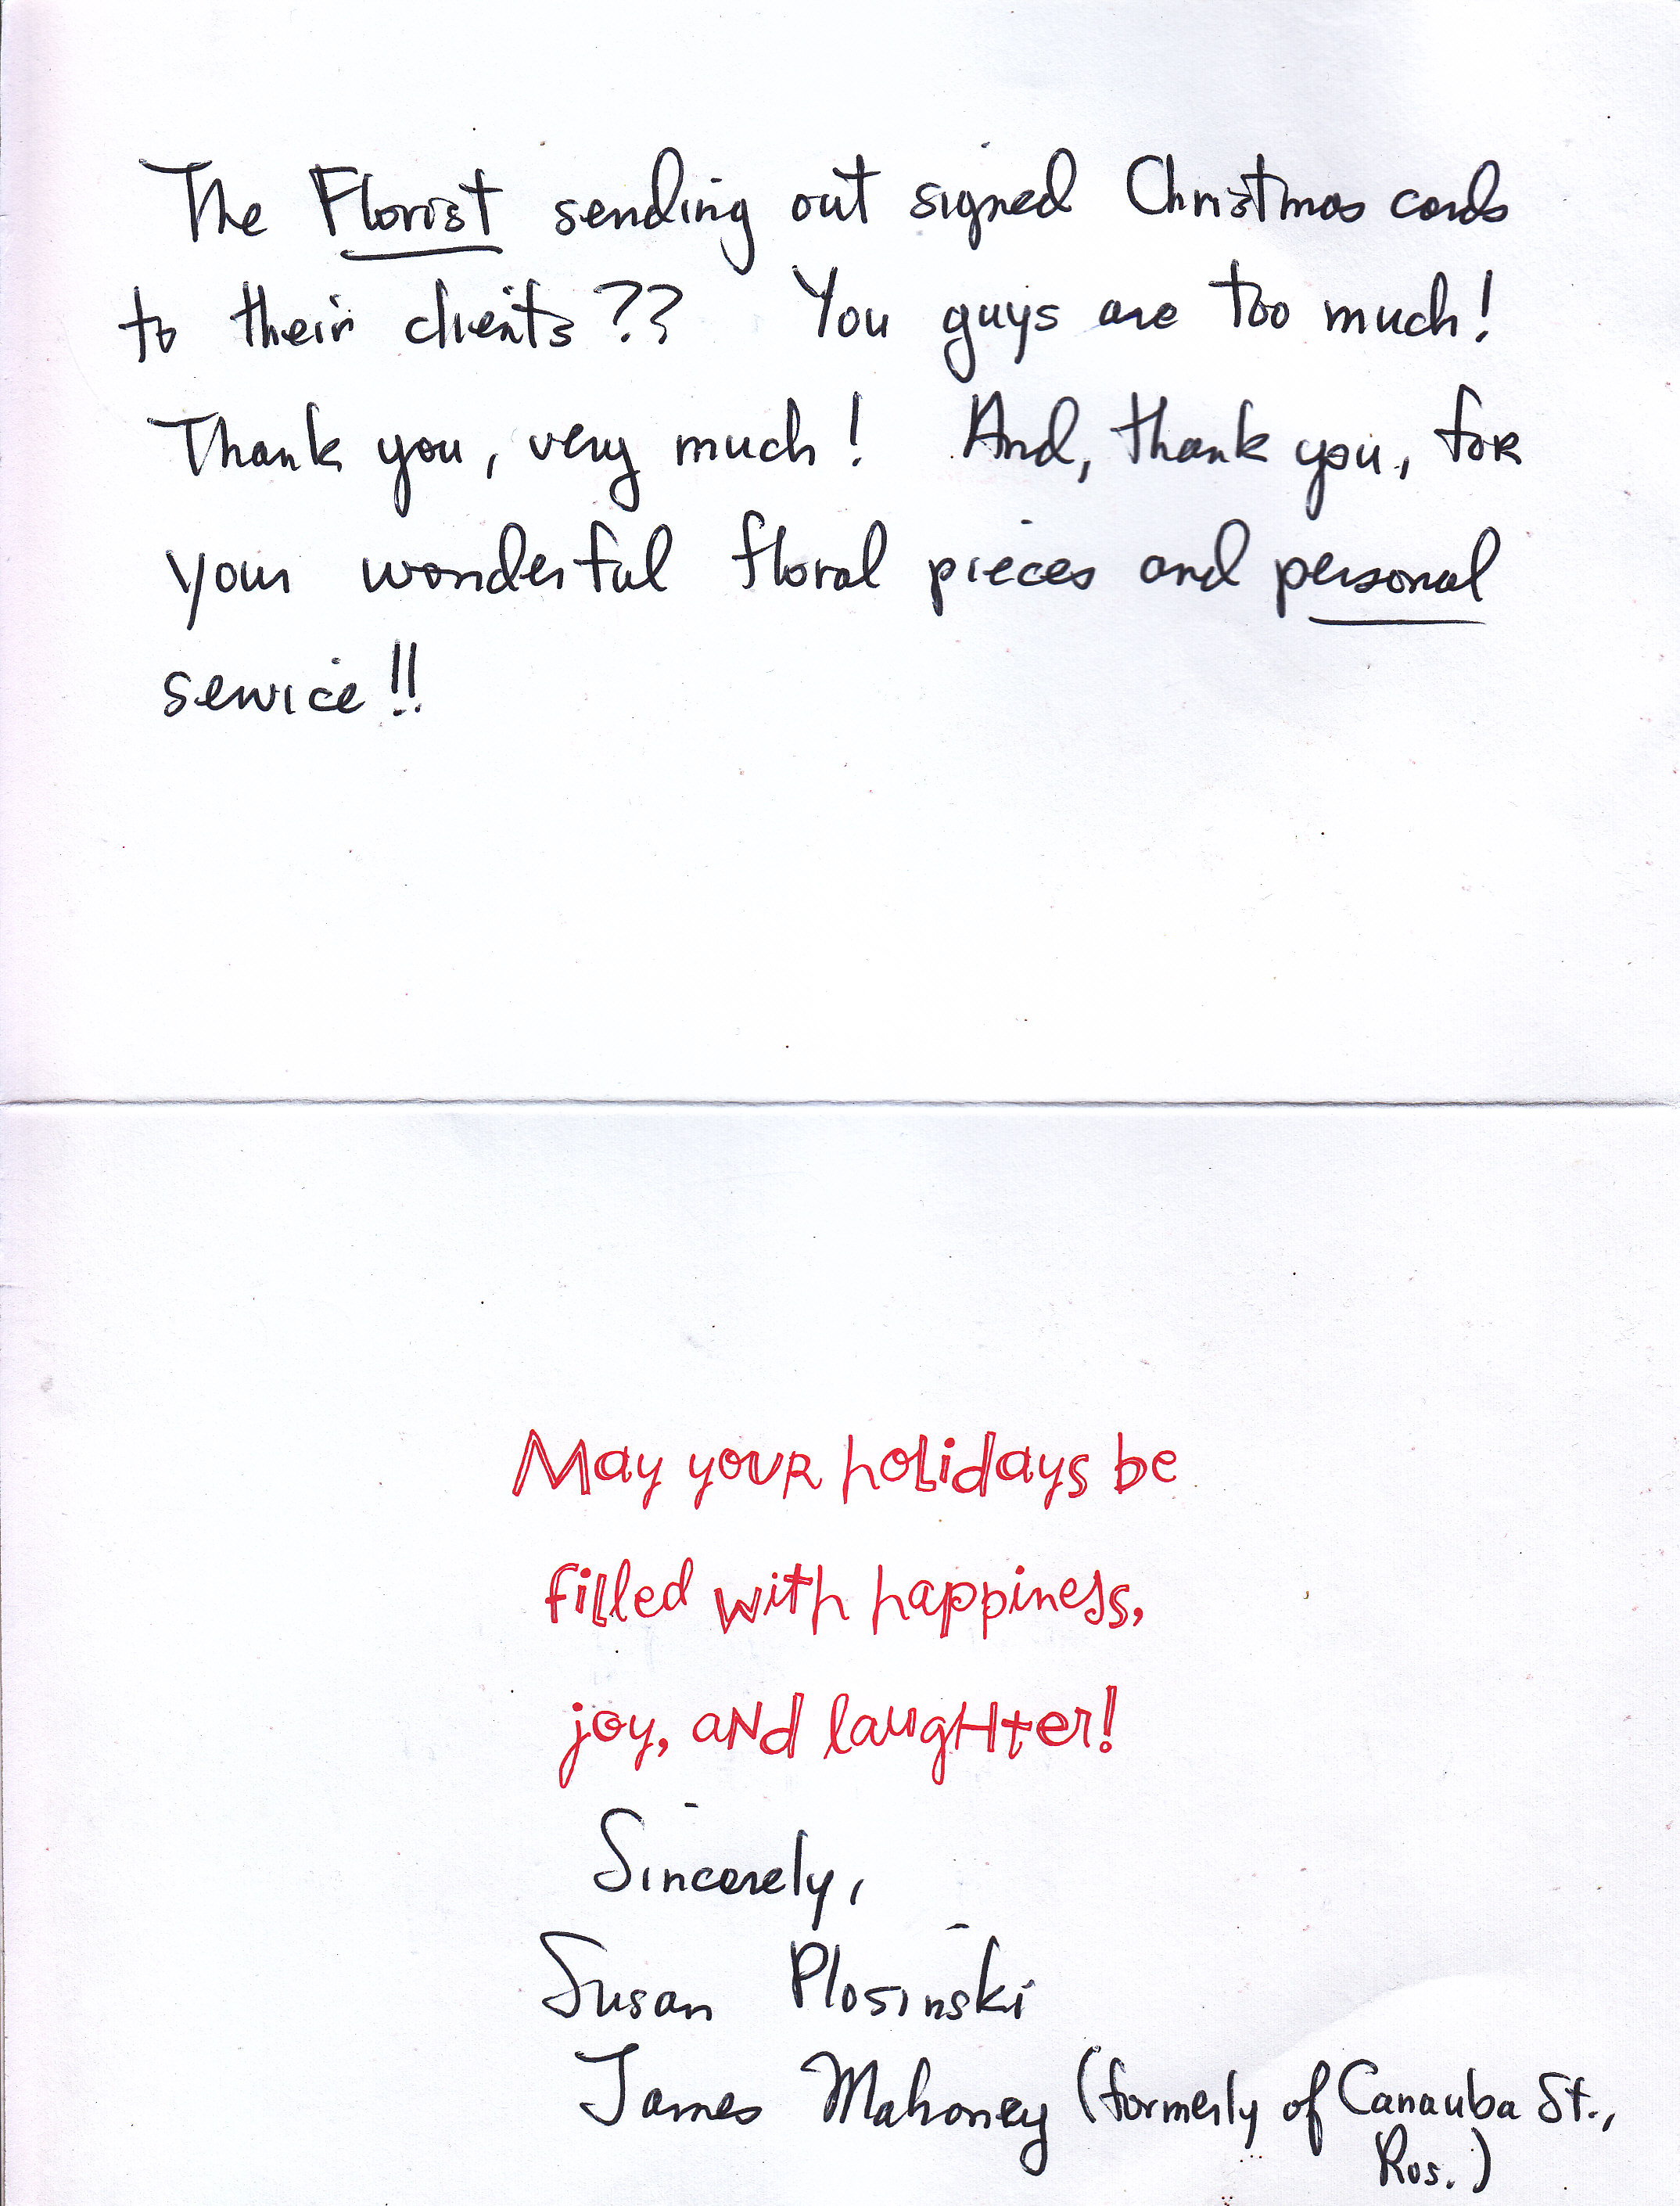 The Florist sending out signed Christmas cards
to their clients?? You guys are too much!
Thank you, very much! And, thank you, for
your wonderful floral pieces and personal
service!!
May your holidays be
filled with happiness,
joy, and laughter!
Sincerely,
Susan Plosinski
James Mahoney (formerly of Canauba St.,
Ros.)